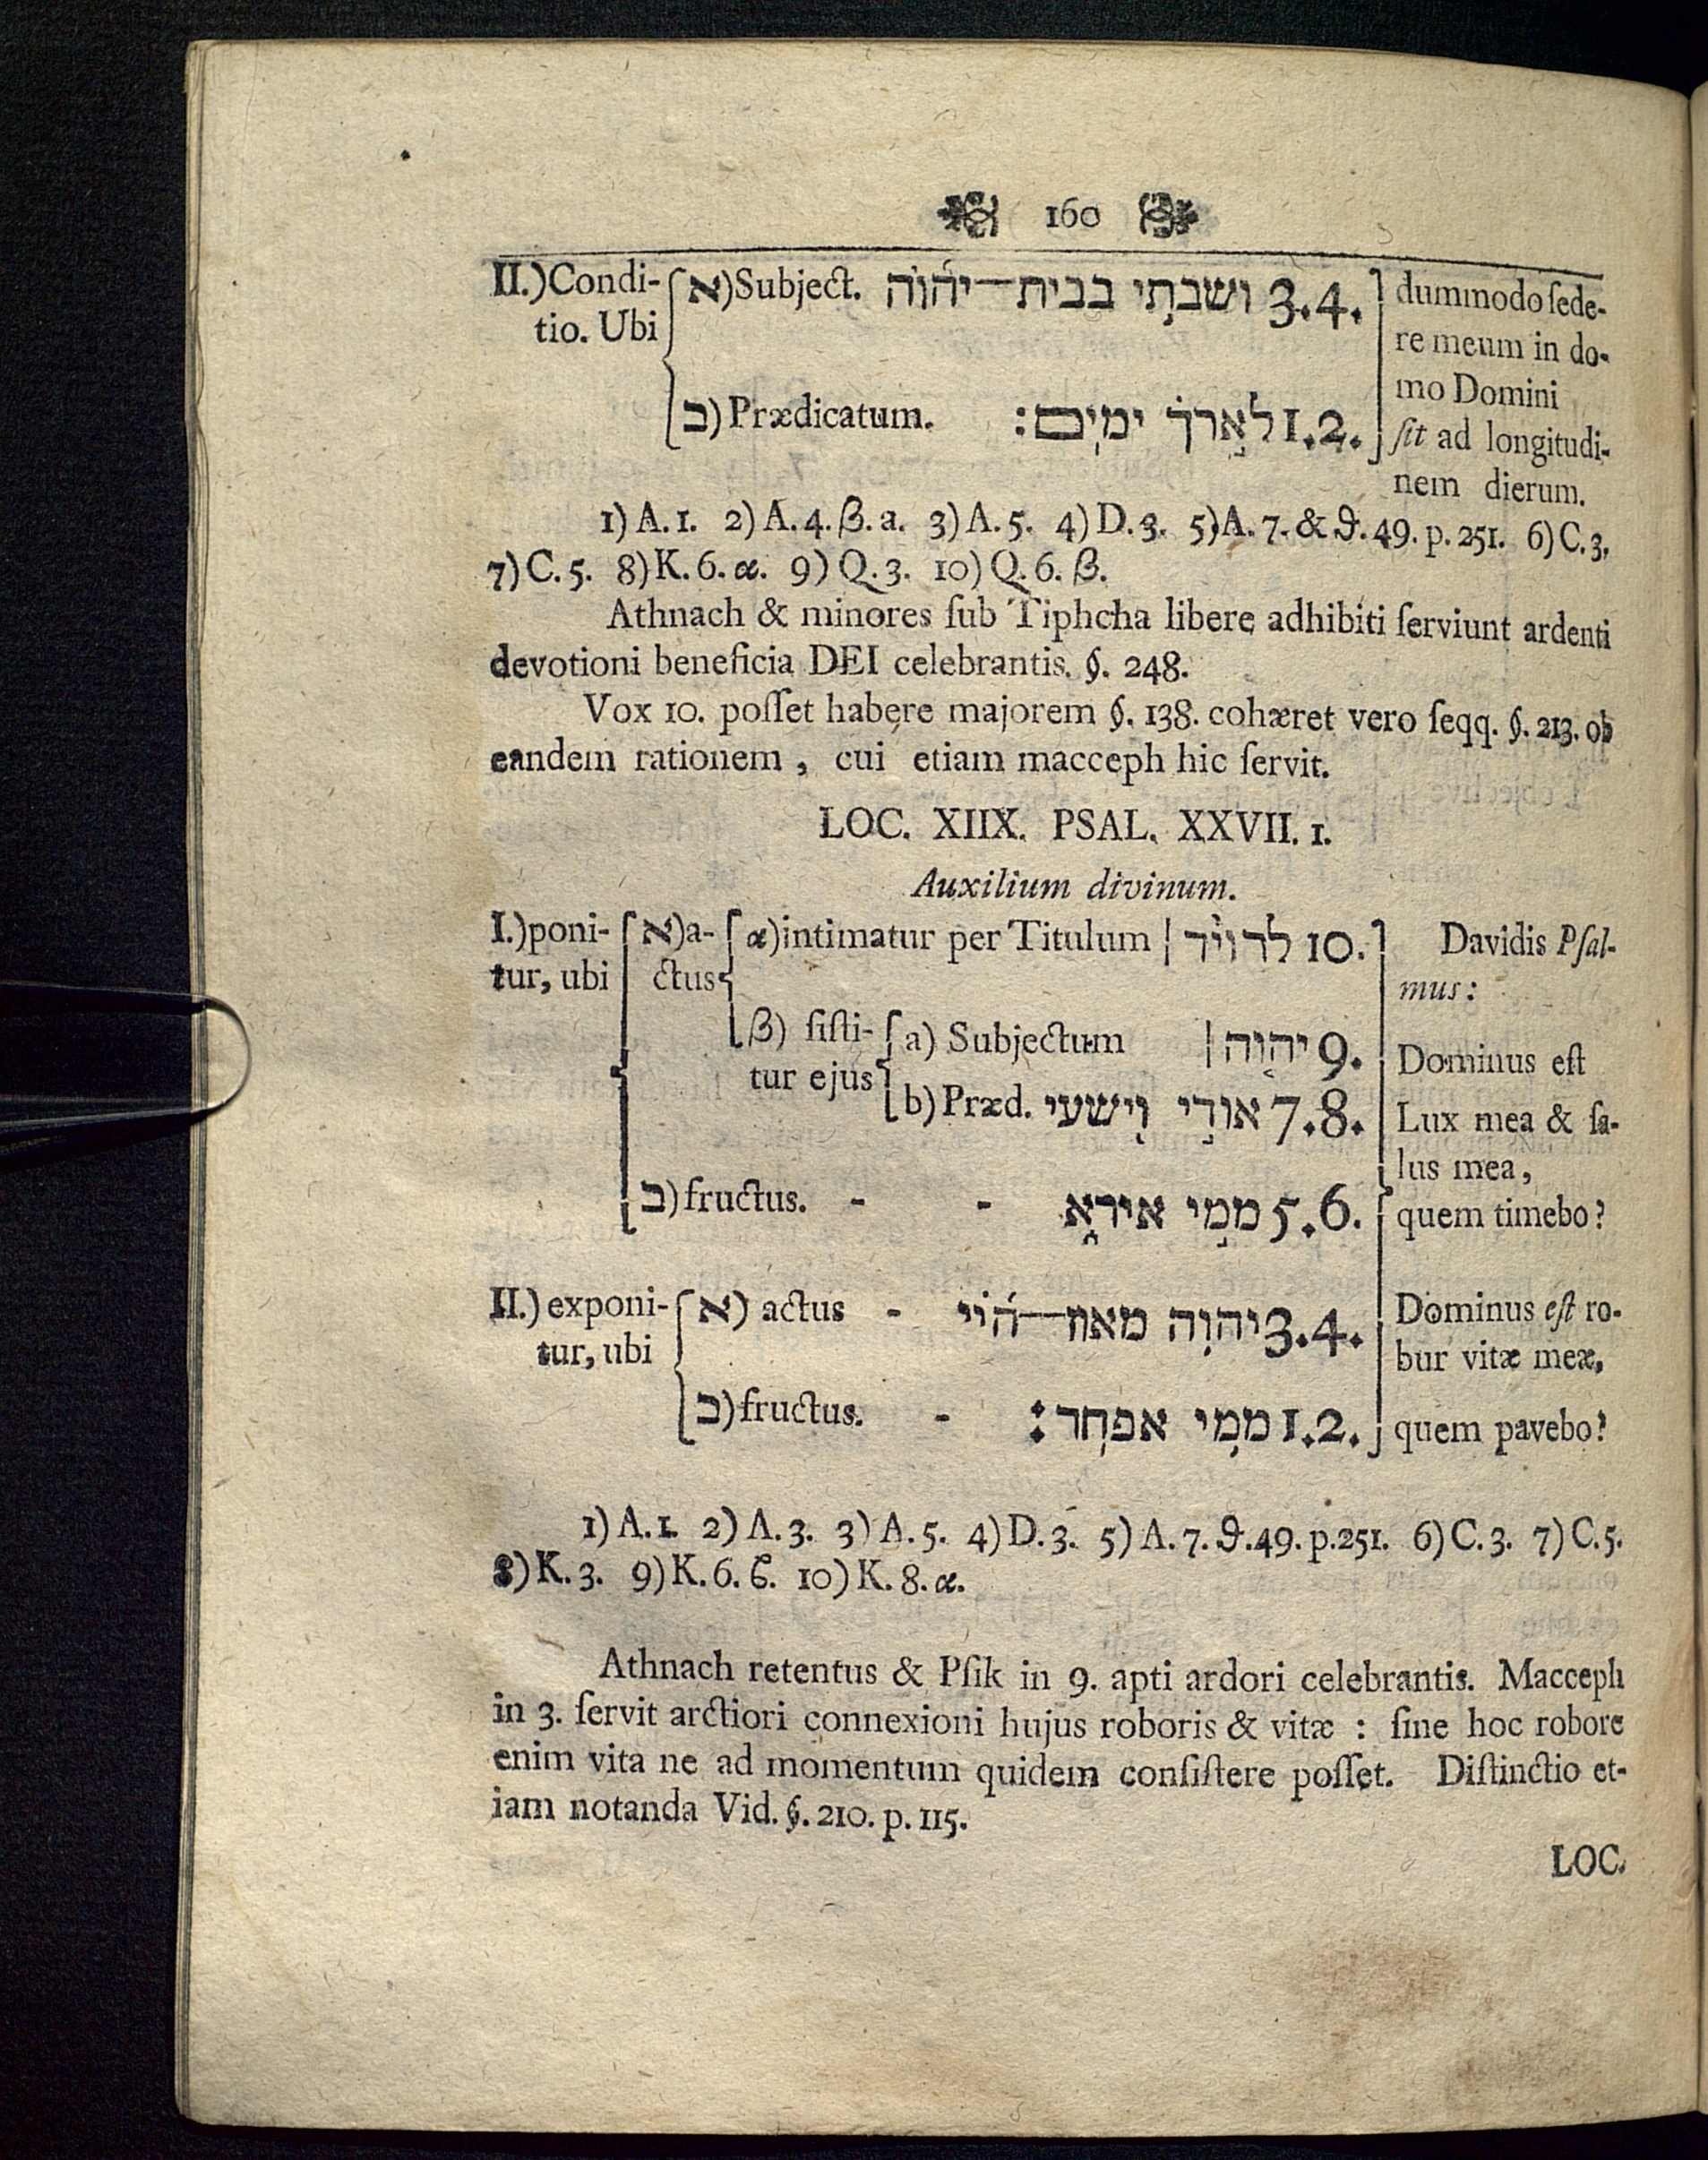 160
II.) Condi- א) Subject. ושבתי בבית־יהוה 3.4. dummodo ſede-
tio. Ubi re meum in do-
mo Domini
ב) Prædicatum. לארך ימים: 1.2. ſit ad longitudi-
nem dierum.
1) A. 1. 2) A. 4. β. a. 3) A. 5. 4) D. 3. 5) A. 7. & ϑ. 49. p. 251. 6) C. 3.
7) C. 5. 8) K. 6. α. 9) Q. 3. 10) Q. 6. β.
Athnach & minores ſub Tiphcha libere adhibiti ſerviunt ardenti
devotioni beneficia DEI celebrantis. §. 248.
Vox 10. poſſet habere majorem §. 138. cohæret vero ſeqq. §. 213. ob
eandem rationem, cui etiam macceph hic ſervit.
LOC. XIIX. PSAL. XXVII. 1.
Auxilium divinum.
I.) poni- א) a- α) intimatur per Titulum | לדויד 10. Davidis Pſal-
tur, ubi ctus mus:
β) ſiſti- a) Subjectum | יהוה 9. Dominus eſt
tur ejus b) Præd. אורי וישעי 7.8. Lux mea & ſa-
lus mea,
ב) fructus. - - ממי אירא 5.6. quem timebo?
II.) exponi- א) actus - יהוה מאוז־חיי 3.4. Dominus eſt ro-
tur, ubi bur vitæ meæ,
ב) fructus. - ממי אפחד: 1.2. quem pavebo?
1) A. 1. 2) A. 3. 3) A. 5. 4) D. 3. 5) A. 7. ϑ. 49. p. 251. 6) C. 3. 7) C. 5.
8) K. 3. 9) K. 6. ϐ. 10) K. 8. α.
Athnach retentus & Pſik in 9. apti ardori celebrantis. Macceph
in 3. ſervit arctiori connexioni hujus roboris & vitæ : ſine hoc robore
enim vita ne ad momentum quidem conſiſtere poſſet. Diſtinctio et-
iam notanda Vid. §. 210. p. 115.
LOC.